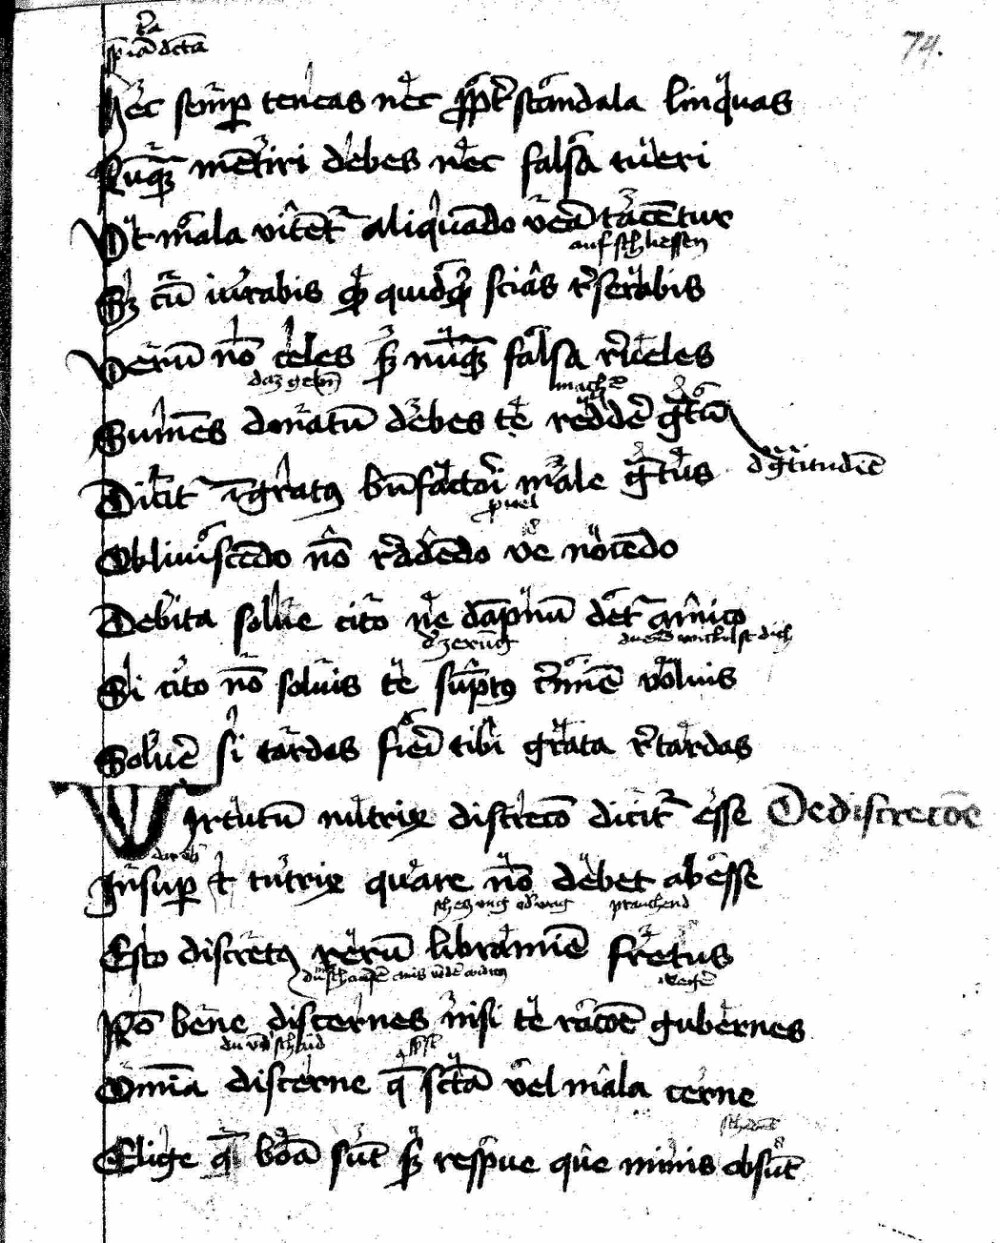 74.
p̄ria dc̄ta
Hec semp teneas nec ppt̄ scandala linquas
Nūqᷓ mētiri debes nec falsa tueri
Vt mala vitēt᷑ aliquādo vera tacētur
auf schliessen
Sꝫ cū iurabis qͥ quidqͥd scias r̄serabis
Verū nō celes sꝫ nūqᷓ falsa r̄ueles
daz gebn̄ mach
Sumēs donatū debes te reddē gͣtū
Dicit᷑ īgratꝰ bn̄factori male gͣtus dꝫ gͣtitudīē
Obliuiscēdo nō r̄dādēdo ve nocēdo
Debita solue cito ne dāpnū det᷑ amico
dꝫ zerūg
Si cito nō soluis te sūptꝰ cͥmīe voluis
Soluē si tardas fieī tibi grata r̄tardas
Virtutū nutrix discrecō dicit᷑ esse De discrecōe
Insup ē tutrix quare nō debet abesse
prauchend
Esto discretꝰ rerū libramīe fretus
Nō bene discernes nisi te racōe gubernes
Omīa discerne q̄ sc̄tā vel mala cerne
Elige q̄ bōa sūt sꝫ respue que nimis obsūt